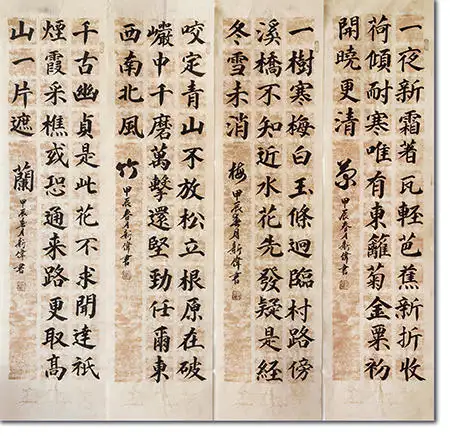 一夜新霜著瓦輕芭蕉新折收
荷傾耐寒唯有東籬菊金粟初
開曉更清 菊 甲辰春月新偉書
一樹寒梅白玉條迴臨村路傍
溪橋不知近水花先發疑是經
冬雪未消 梅 甲辰春月新偉書
咬定青山不放松立根原在破
巖中千磨萬擊還堅勁任爾東
西南北風 竹 甲辰春月新偉書
千古幽貞是此花不求聞達祇
煙霞采樵或恐通来路更取髙
山一片遮 蘭 甲辰春月新偉書